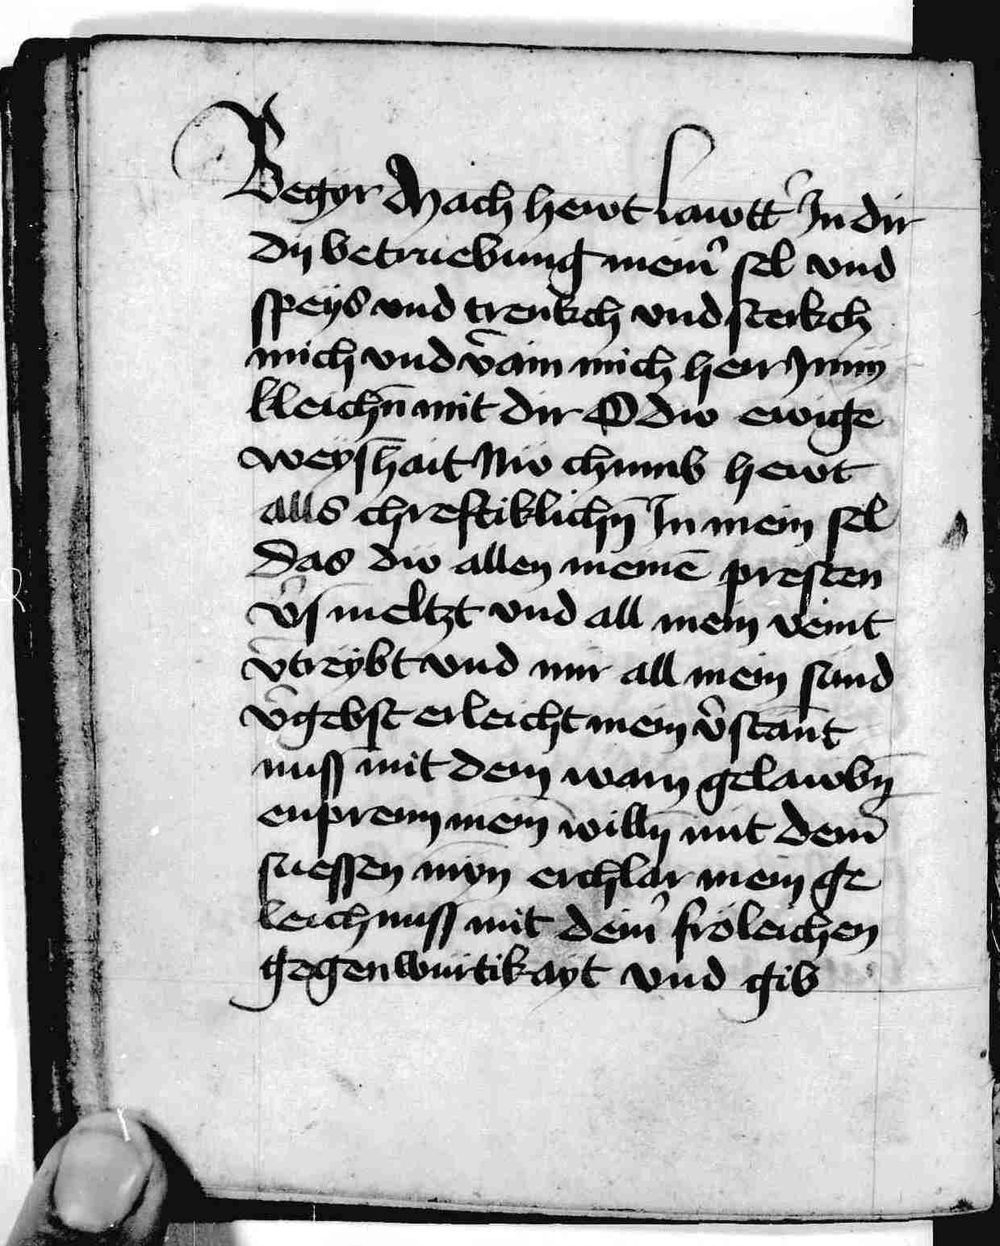 Begyr Mach hewt lawtt͛ In dir
dy betruebung mein͛ sel vnd
speys vnd trenkch vnd sterkch
mich vnd v͛ain mich herr Inni
kleichn̄ mit dir O dw ewige
weyshait Nw chumb hewt
alls chreftiklichn̄ In mein sel
Das dw allen meinē presten
v͛smeltzt vnd all mein veint
v͛treybt vnd mir all mein sünd
v͛gebst erleicht mein v͛stant
nuss mit dem warn gelawbn̄
enprenn mein willn̄ mit dein͛
suessen myn erchlär mein ge
leichnuss mit dein͛ fröleichen
gegenwürtikayt vnd gib